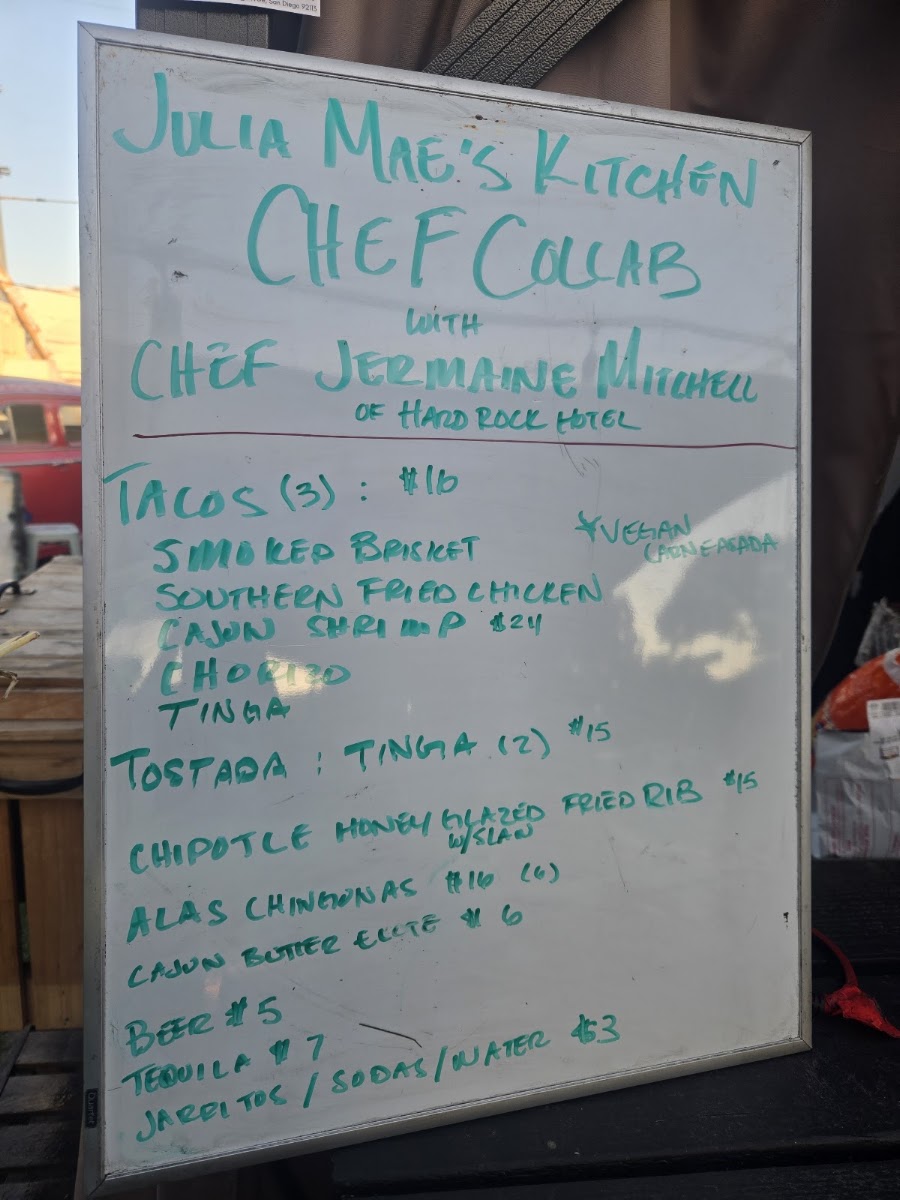 San Diego 92115
JULIA MAE'S KITCHEN
CHEF COLLAB
WITH
CHEF JERMAINE MITCHELL
OF HARD ROCK HOTEL
TACOS (3) : $16
*VEGAN
CARNE ASADA
SMOKED BRISKET
SOUTHERN FRIED CHICKEN
CAJUN SHRIMP $24
CHORIZO
TINGA
TOSTADA : TINGA (2) $15
CHIPOTLE HONEY GLAZED FRIED RIB $15
W/SLAW
ALAS CHINGONAS $16 (6)
CAJUN BUTTER ELOTE $6
BEER $5
TEQUILA $7
JARRITOS / SODAS / WATER $3
Quartet